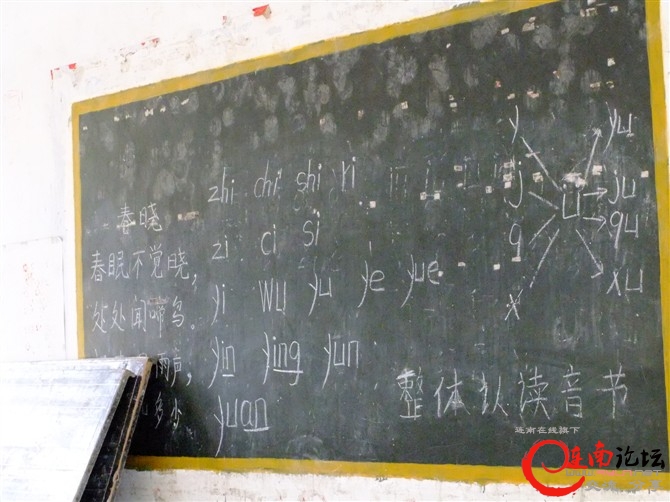 春晓
春眠不觉晓，
处处闻啼鸟。
雨声，
多少
zhi chi shi ri
zi ci si
yi wu yu ye yue
yin ying yun
yuan
y
j
q
x
ü
yu
ju
qu
xu
整体认读音节
连南在线旗下
连南论坛